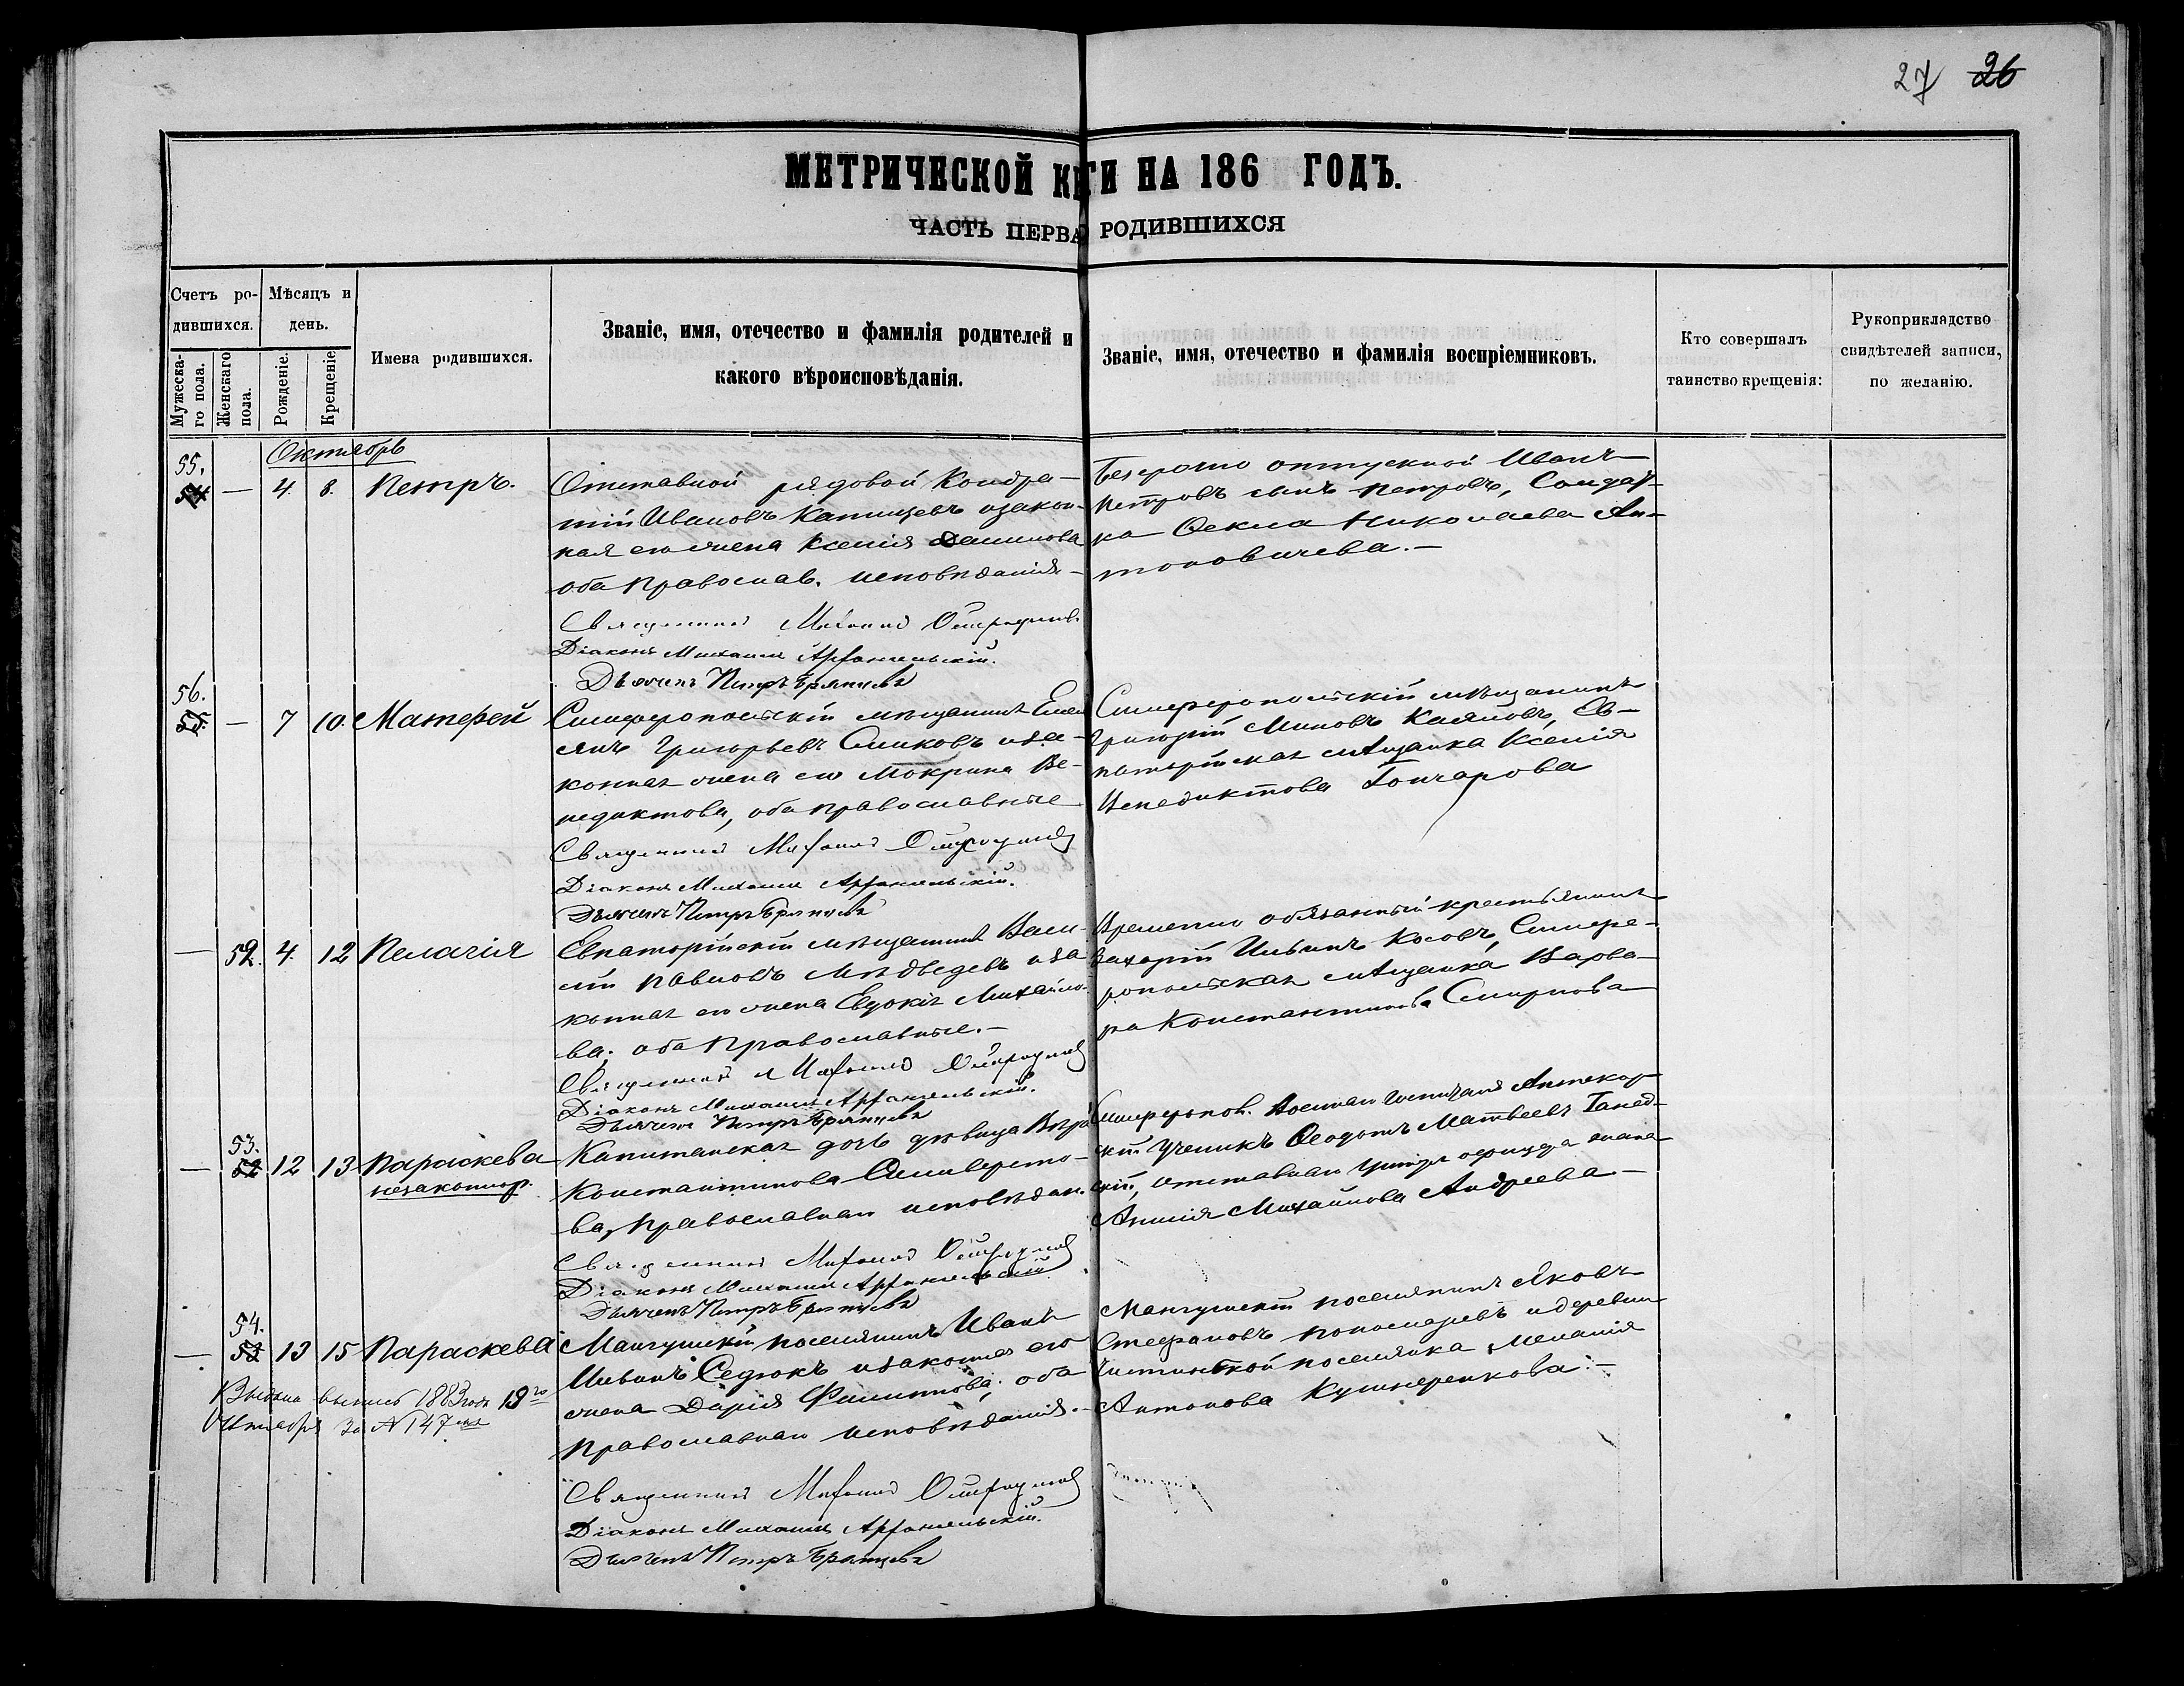 27 26
МЕТРИЧЕСКОЙ КНГИ НА 186 ГОДЪ.
ЧАСТЬ ПЕРВАЯ РОДИВШИХСЯ
Счетъ ро-
дившихся.
Мужеска-
го пола.
Женскаго
пола.
Мѣсяцъ и
день.
Рожденіе.
Крещеніе
Имена родившихся.
Званіе, имя, отечество и фамилія родителей и
какого вѣроисповѣданія.
Званіе, имя, отечество и фамилія воспріемниковъ.
Кто совершалъ
таинство крещенія:
Рукоприкладство
свидѣтелей записи,
по желанію.
Октябрь
55.
54 — 4. 8. Петръ.
Отставной рядовой Кондра-
тій Ивановъ и закон-
ная его жена Ксенія
оба Православ. исповѣданія
Священникъ Михаилъ
Діаконъ Михаилъ Архангельскій.
Дьячекъ Петръ Брянцевъ
Безсрочно отпускной Иванъ
Петровъ сынъ Петровъ, Солдат-
ка Ѳекла Николаева Ан-
тоновичева.—
56.
55. — 7 10. Матѳей
Симферопольскій мѣщанинъ Емел
янъ Григорьевъ и за-
конная жена его Мокрина Ве-
недиктова, оба православные
Священникъ Михаилъ
Діаконъ Михаилъ Архангельскій.
Дьячекъ Петръ Брянцевъ
Симферопольскій мѣщанинъ
Григорій Миновъ Каяновъ, Ев-
паторійская мѣщанка Ксенія
Венедиктова Гончарова
— 52. 4. 12 Пелагія
Евпаторійскій мѣщанинъ Васи-
лій Павловъ Мѣдведевъ и за
конная его жена Евдокія Михайло-
ва; оба Православные.—
Священникъ Михаилъ
Діаконъ Михаилъ Архангельскій.
Дьячекъ Петръ Брянцевъ
Временно обязанный крестьянинъ
Захарій Ильинъ Косовъ, Симфе-
ропольская мѣщанка Варва-
ра Константинова Смирнова
53.
52 12 13 Параскева
незаконнор.
Капитанская дочь дѣвица Вѣра
Константинова Селиверсто-
ва, Православнаго исповѣдан.
Священникъ Михаилъ
Діаконъ Михаилъ Архангельскій
Дьячекъ Петръ Брянцевъ
Симфероп. Военнаго госпиталя Аптекар-
скій ученикъ Ѳеодотъ Матвеевъ
скій, отставнаго унтеръ офицера жена
Михайлова Андреева—
54.
53 13 15 Параскева
Мангушскій поселянинъ Иванъ
Ивановъ Седюкъ и законная его
жена Дарія Филиппова; оба
Православнаго исповѣданія.
Священникъ Михаилъ
Діаконъ Михаилъ Архангельскій.
Дьячекъ Петръ Брянцевъ
Мангушскій поселянинъ Яковъ
Стефановъ Пономаревъ и деревни
поселянка Меланія
Антонова Кушнеренкова.—
Выдана выпись 1883 года 18го
Октября за № 147мъ